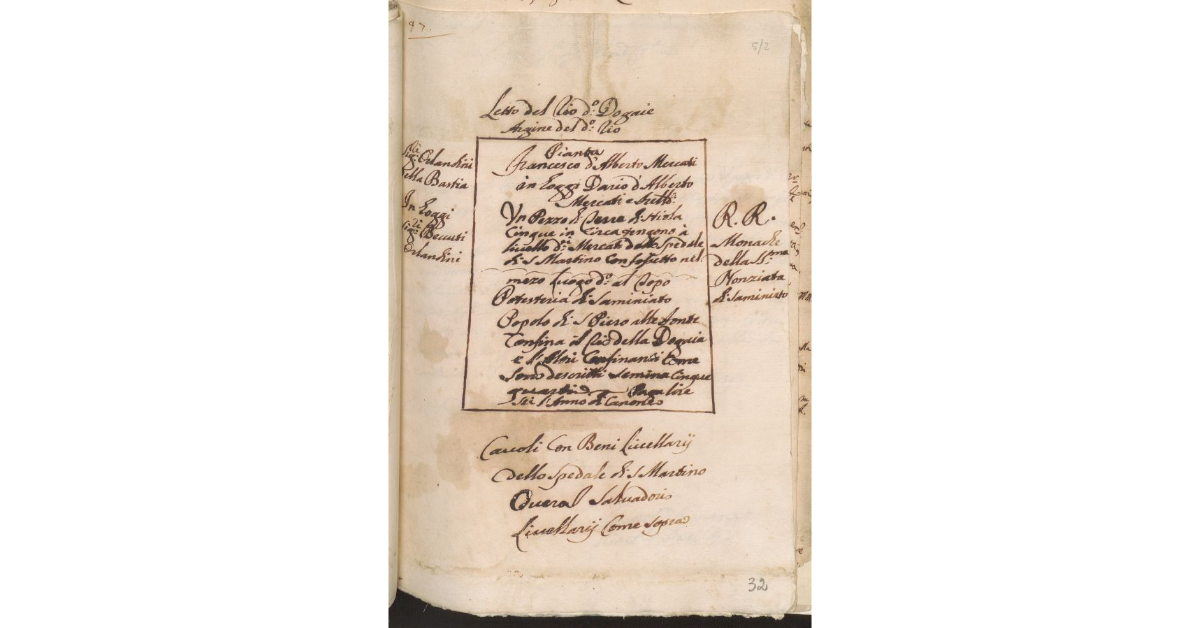 97.
5/2
Letto del Rio d:º Dogaie
Argine del d:º Rio
Sig:ri Orlandini
della Bastia
In Loggi
Sig:ri Becuti
Orlandini
Pianta
Francesco d'Alberto Mercati
in Loggi Dario d'Alberto
Mercati e
Un Pezzo di Terra di Stiola
Cinque in Circa tengono à
livello d:i Mercati dallo Spedale
di S Martino Con fossetto nel
mezo Luogo d:º al Copo
Potesteria di Saminiato
Popolo di S Piero alle Fonte
Confina il Rio della Dogaia
e d' Altri Confinanti Come
sono descritti Semina Cinque
Paga lire
Sei l'Anno di Canone
R. R.
Monache
della SS:ma
Nonziata
di Saminiato
Cascoli Con Beni Livellarij
dello Spedale di S Martino
Overo Salvadori
Livellarij Come sopra
32